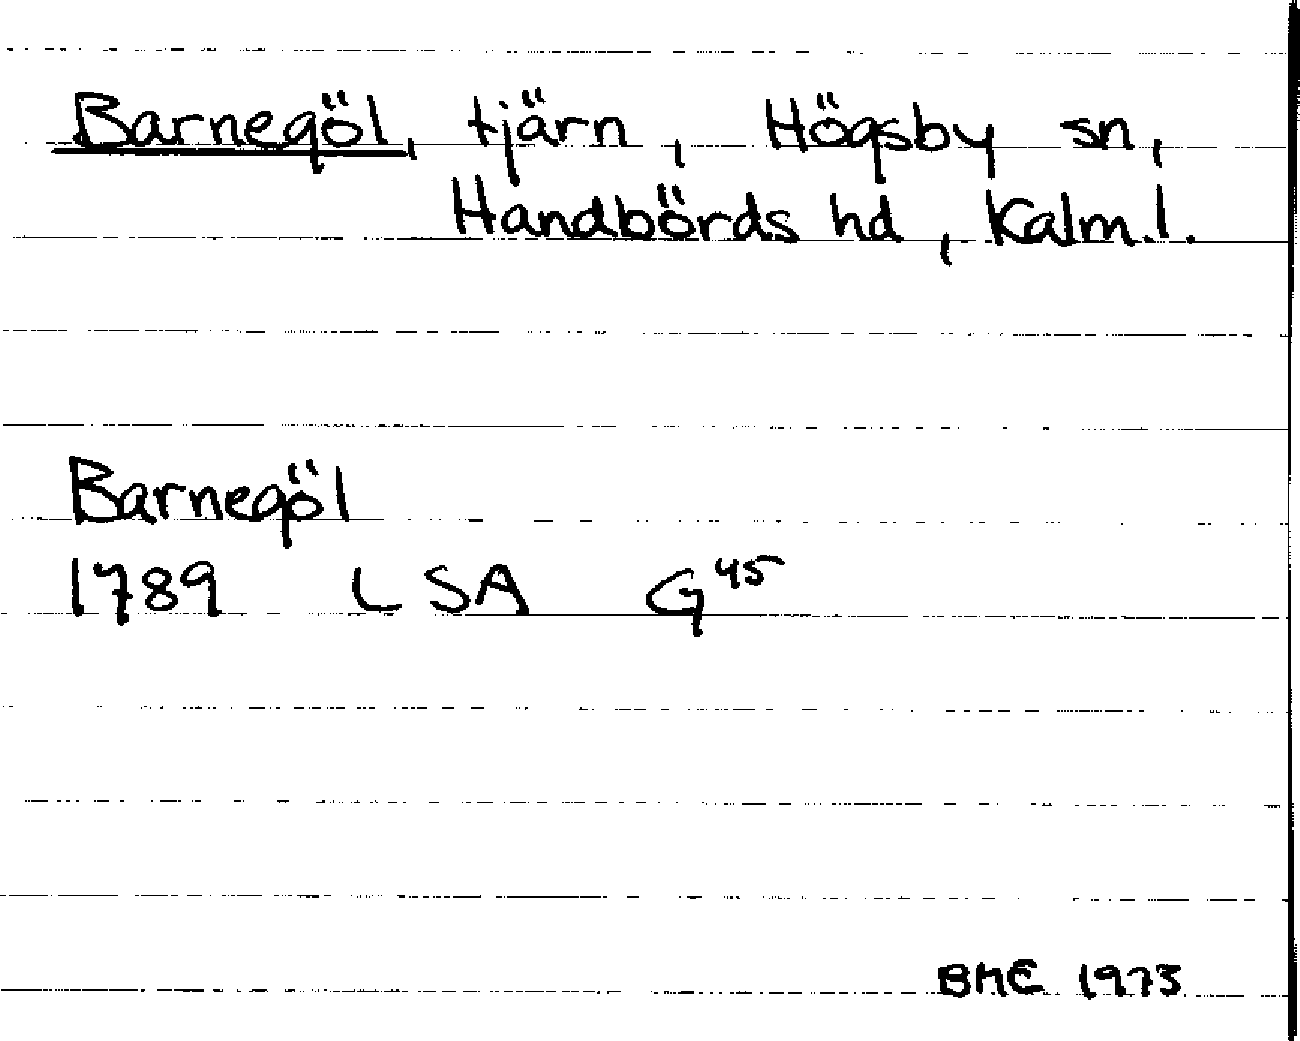 Barnegöl, tjärn, Högsby sn,
Handbörds hd, Kalm.l.
Barnegöl
1789 LSA G45
BME 1973